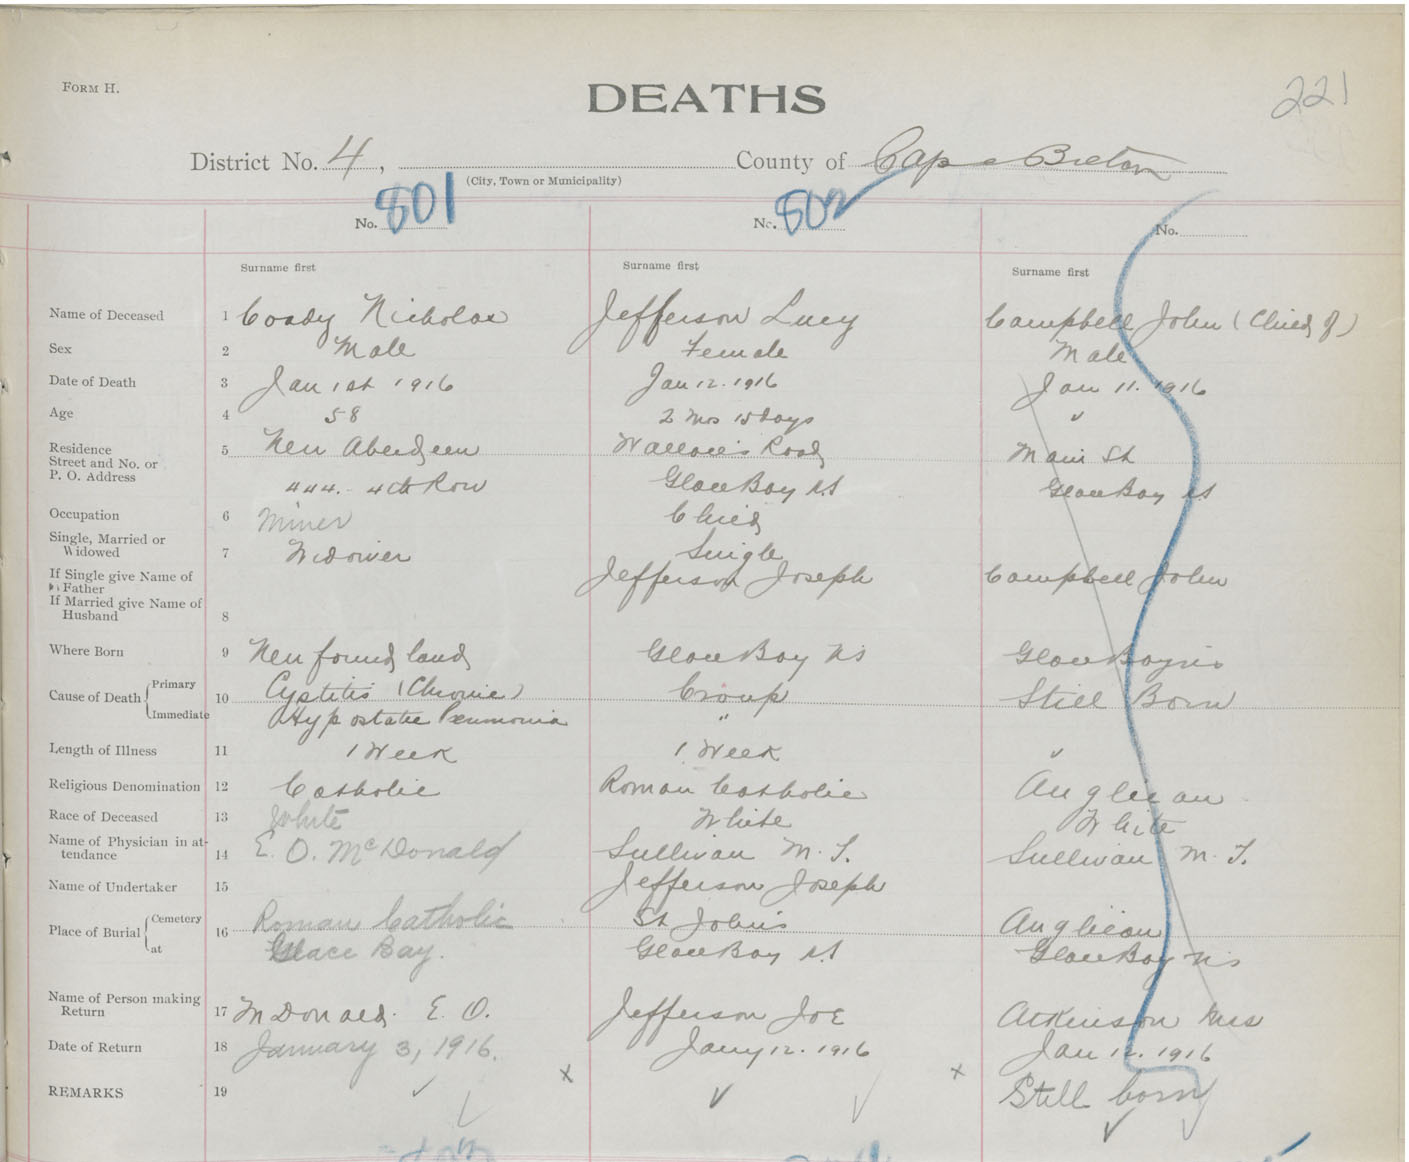 FORM H.
DEATHS
221
District No. 4, County of Cape Breton
(City, Town or Municipality)
No. 801 No. 802 No.
Surname first Surname first Surname first
Name of Deceased 1 Coady Nicholas Jefferson Lucy Campbell John (Child of)
Sex 2 Male Female Male
Date of Death 3 Jan 1st 1916 Jan 12. 1916 Jan 11. 1916
Age 4 58 2 Mos 15 days "
Residence 5 New Aberdeen Wallace's Road Main St
Street and No. or
P. O. Address 444. 4th Row Glace Bay NS Glace Bay NS
Occupation 6 Miner Child
Single, Married or
Widowed 7 Widower Single
If Single give Name of
Father Jefferson Joseph Campbell John
If Married give Name of
Husband 8
Where Born 9 Newfoundland Glace Bay NS Glace Bay NS
Cause of Death Primary 10 Cystitis (Chronic) Croup Still Born
Immediate Hypostatic Pneumonia "
Length of Illness 11 1 Week 1 Week "
Religious Denomination 12 Catholic Roman Catholic Anglican
Race of Deceased 13 White White White
Name of Physician in at-
tendance 14 E. O. McDonald Sullivan M. T. Sullivan M. T.
Name of Undertaker 15 Jefferson Joseph
Place of Burial Cemetery 16 Roman Catholic St John's Anglican
at Glace Bay. Glace Bay NS Glace Bay NS
Name of Person making
Return 17 McDonald. E. O. Jefferson Joe Atkinson Mrs
Date of Return 18 January 3, 1916. Jany 12. 1916 Jan 12. 1916
REMARKS 19 Still born